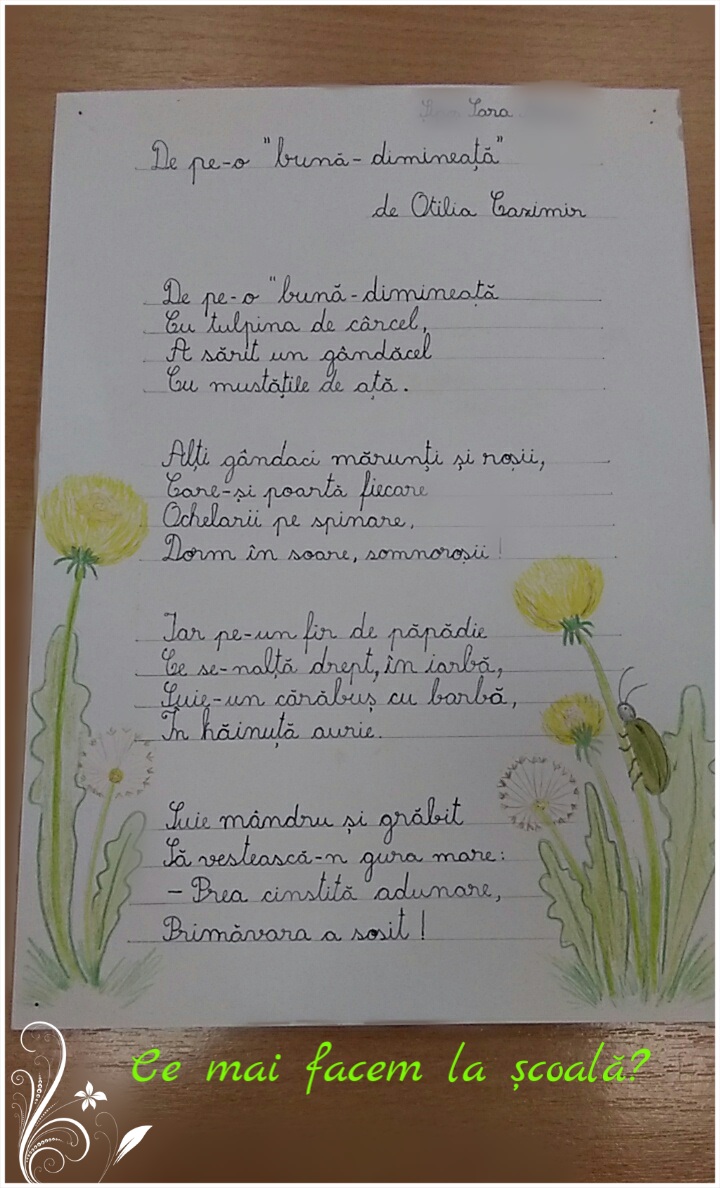 Sara
De pe-o "bună-dimineață"
de Otilia Cazimir
De pe-o "bună-dimineață
Cu tulpina de cârcel,
A sărit un gândăcel
Cu mustățile de ață.
Alți gândaci mărunți și roșii,
Care-și poartă fiecare
Ochelarii pe spinare,
Dorm în soare, somnoroșii!
Iar pe-un fir de păpădie
Ce se-nalță drept, în iarbă,
Suie-un cărăbuș cu barbă,
În hăinuță aurie.
Suie mândru și grăbit
Să vestească-n gura mare:
- Prea cinstită adunare,
Primăvara a sosit!
Ce mai facem la școală?